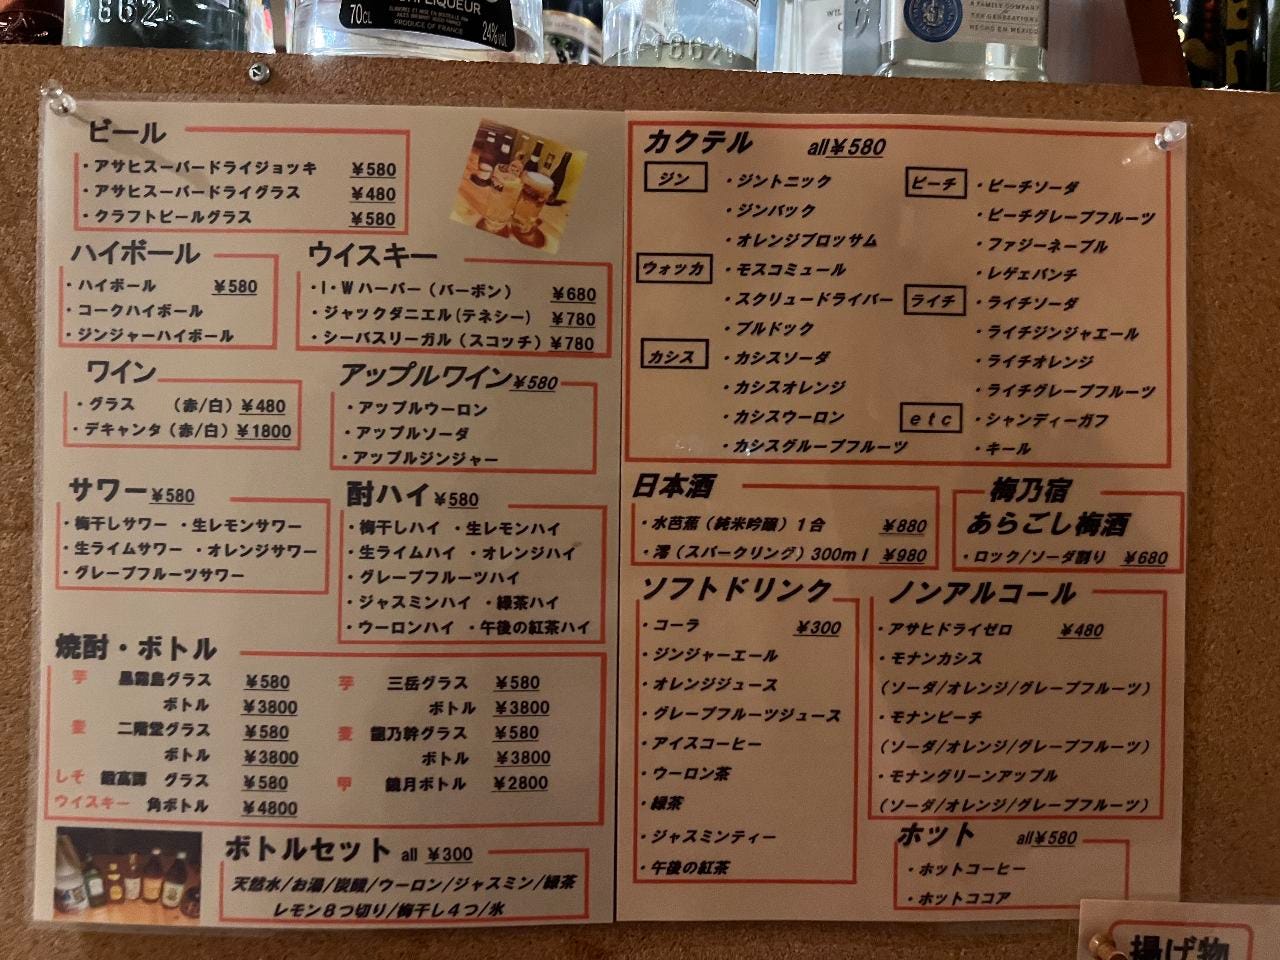 70CL
LIQUEUR
PRODUCE OF FRANCE
24%vol
A FAMILY COMPANY
HECHO EN MEXICO
ビール
・アサヒスーパードライジョッキ ¥580
・アサヒスーパードライグラス ¥480
・クラフトビールグラス ¥580
ハイボール
・ハイボール ¥580
・コークハイボール
・ジンジャーハイボール
ウイスキー
・I・Wハーパー（バーボン） ¥680
・ジャックダニエル(テネシー) ¥780
・シーバスリーガル（スコッチ）¥780
ワイン
・グラス （赤/白）¥480
・デキャンタ（赤/白）¥1800
アップルワイン¥580
・アップルウーロン
・アップルソーダ
・アップルジンジャー
サワー¥580
・梅干しサワー ・生レモンサワー
・生ライムサワー ・オレンジサワー
・グレープフルーツサワー
酎ハイ¥580
・梅干しハイ ・生レモンハイ
・生ライムハイ ・オレンジハイ
・グレープフルーツハイ
・ジャスミンハイ ・緑茶ハイ
・ウーロンハイ ・午後の紅茶ハイ
焼酎・ボトル
芋 黒霧島グラス ¥580
ボトル ¥3800
麦 二階堂グラス ¥580
ボトル ¥3800
しそ 鍛高譚 グラス ¥580
ウイスキー 角ボトル ¥4800
芋 三岳グラス ¥580
ボトル ¥3800
麦 龍乃幹グラス ¥580
ボトル ¥3800
甲 鏡月ボトル ¥2800
ボトルセット all ¥300
天然水/お湯/炭酸/ウーロン/ジャスミン/緑茶
レモン８つ切り/梅干し４つ/氷
カクテル all¥580
ジン
・ジントニック
・ジンバック
・オレンジブロッサム
ウォッカ
・モスコミュール
・スクリュードライバー
・ブルドック
カシス
・カシスソーダ
・カシスオレンジ
・カシスウーロン
・カシスグループフルーツ
ピーチ
・ピーチソーダ
・ピーチグレープフルーツ
・ファジーネーブル
・レゲエパンチ
ライチ
・ライチソーダ
・ライチジンジャエール
・ライチオレンジ
・ライチグレープフルーツ
etc
・シャンディーガフ
・キール
日本酒
・水芭蕉（純米吟醸）１合 ¥880
・澪（スパークリング）300ml ¥980
梅乃宿
あらごし梅酒
・ロック/ソーダ割り ¥680
ソフトドリンク
・コーラ ¥300
・ジンジャーエール
・オレンジジュース
・グレープフルーツジュース
・アイスコーヒー
・ウーロン茶
・緑茶
・ジャスミンティー
・午後の紅茶
ノンアルコール
・アサヒドライゼロ ¥480
・モナンカシス
（ソーダ/オレンジ/グレープフルーツ）
・モナンピーチ
（ソーダ/オレンジ/グレープフルーツ）
・モナングリーンアップル
（ソーダ/オレンジ/グレープフルーツ）
ホット all¥580
・ホットコーヒー
・ホットココア
揚げ物